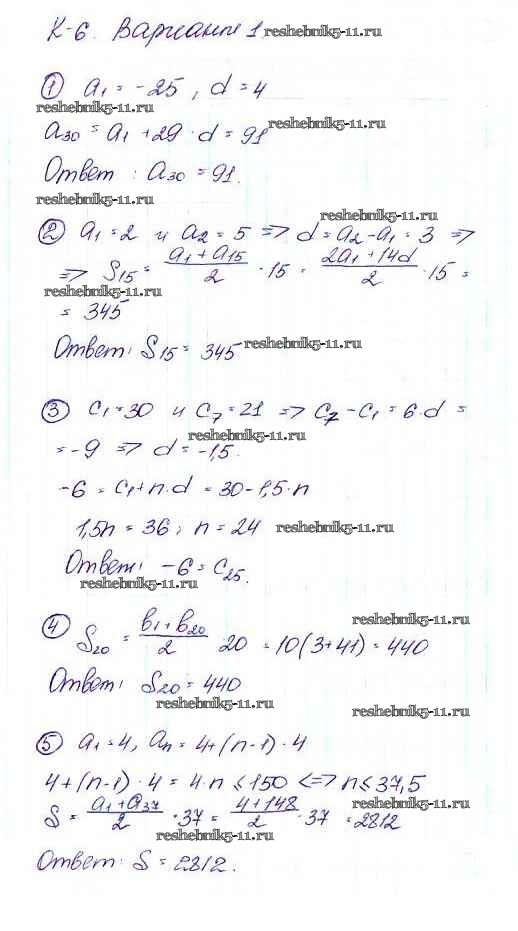 К-6. Вариант 1 reshebnik5-11.ru
① a₁ = -25, d = 4
reshebnik5-11.ru
a₃₀ = a₁ + 29 · d = 91 reshebnik5-11.ru
Ответ: a₃₀ = 91.
reshebnik5-11.ru
reshebnik5-11.ru
② a₁ = 2 и a₂ = 5 => d = a₂ - a₁ = 3 =>
=> S₁₅ = (a₁ + a₁₅)/2 · 15 = (2a₁ + 14d)/2 · 15 =
reshebnik5-11.ru
= 345
Ответ: S₁₅ = 345 reshebnik5-11.ru
③ c₁ = 30 и c₇ = 21 => c₇ - c₁ = 6 · d =
reshebnik5-11.ru
= -9 => d = -1,5.
-6 = c₁ + n · d = 30 - 1,5 · n
1,5n = 36; n = 24 reshebnik5-11.ru
Ответ: -6 = c₂₅.
reshebnik5-11.ru
reshebnik5-11.ru
④ S₂₀ = (b₁ + b₂₀)/2 · 20 = 10(3+41) = 440
Ответ: S₂₀ = 440 reshebnik5-11.ru
reshebnik5-11.ru
⑤ a₁ = 4, aₙ = 4 + (n-1) · 4
4 + (n-1) · 4 = 4 · n ≤ 150 <=> n ≤ 37,5
reshebnik5-11.ru
S = (a₁ + a₃₇)/2 · 37 = (4 + 148)/2 · 37 = 2812
Ответ: S = 2812.
reshebnik5-11.ru